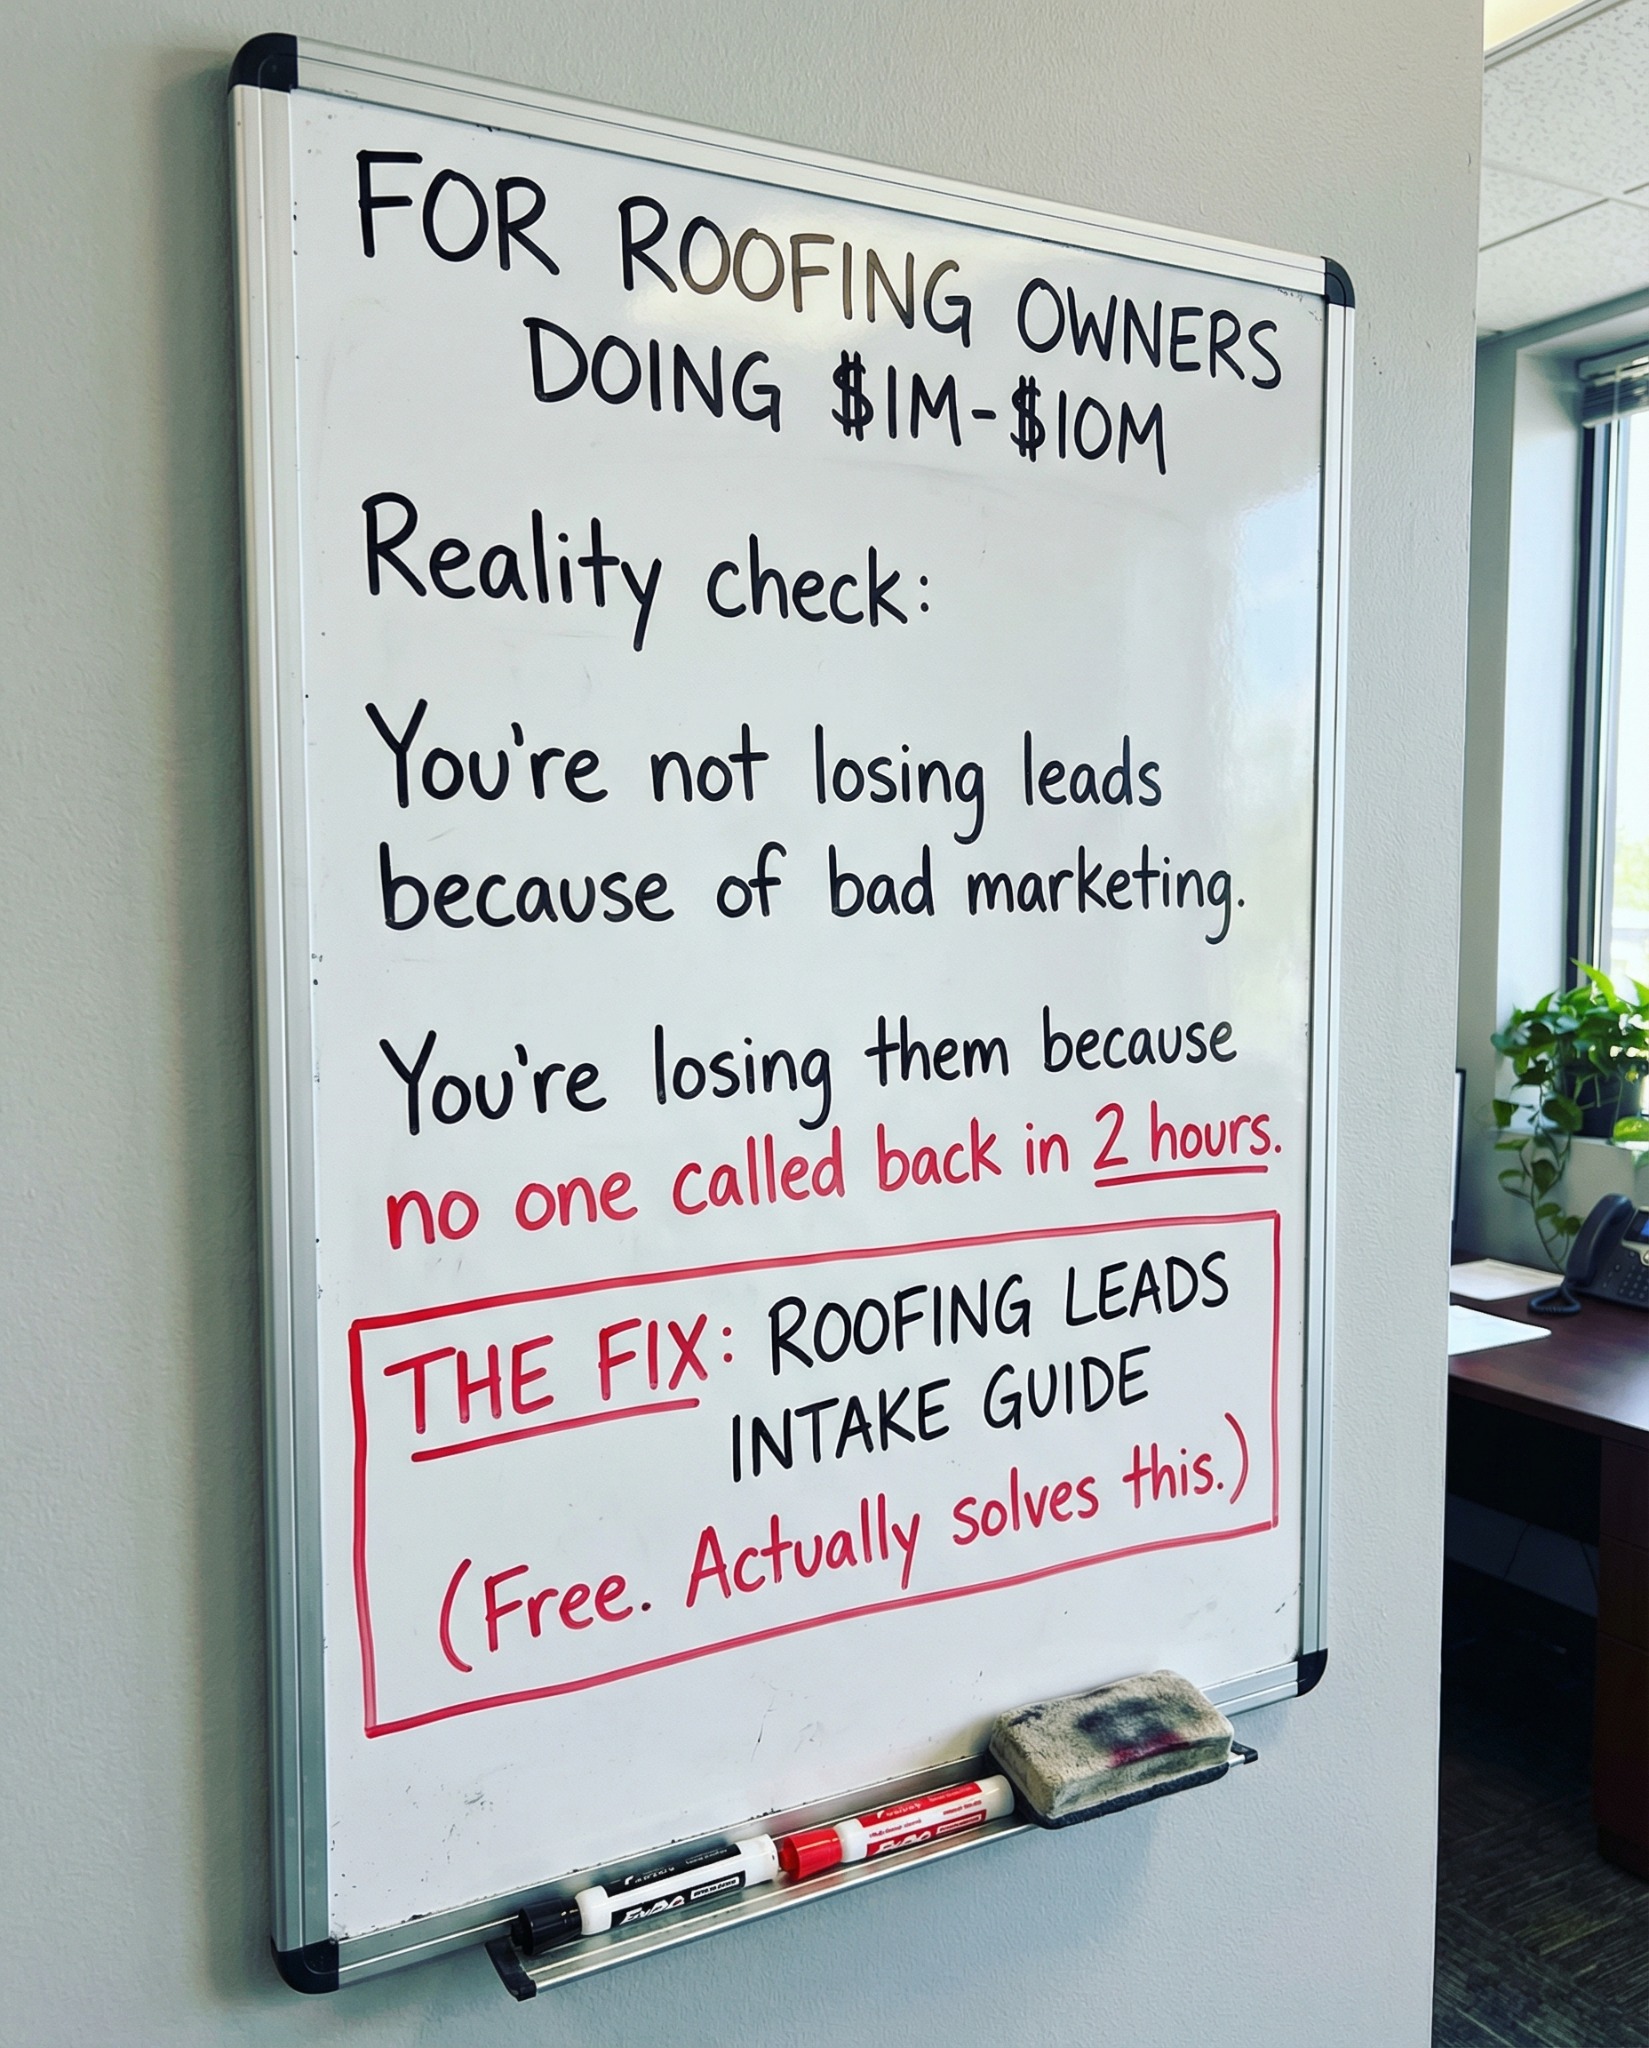 FOR ROOFING OWNERS
DOING $1M-$10M
Reality check:
You're not losing leads
because of bad marketing.
You're losing them because
no one called back in 2 hours.
THE FIX: ROOFING LEADS
INTAKE GUIDE
(Free. Actually solves this.)
EXPO
EXPO